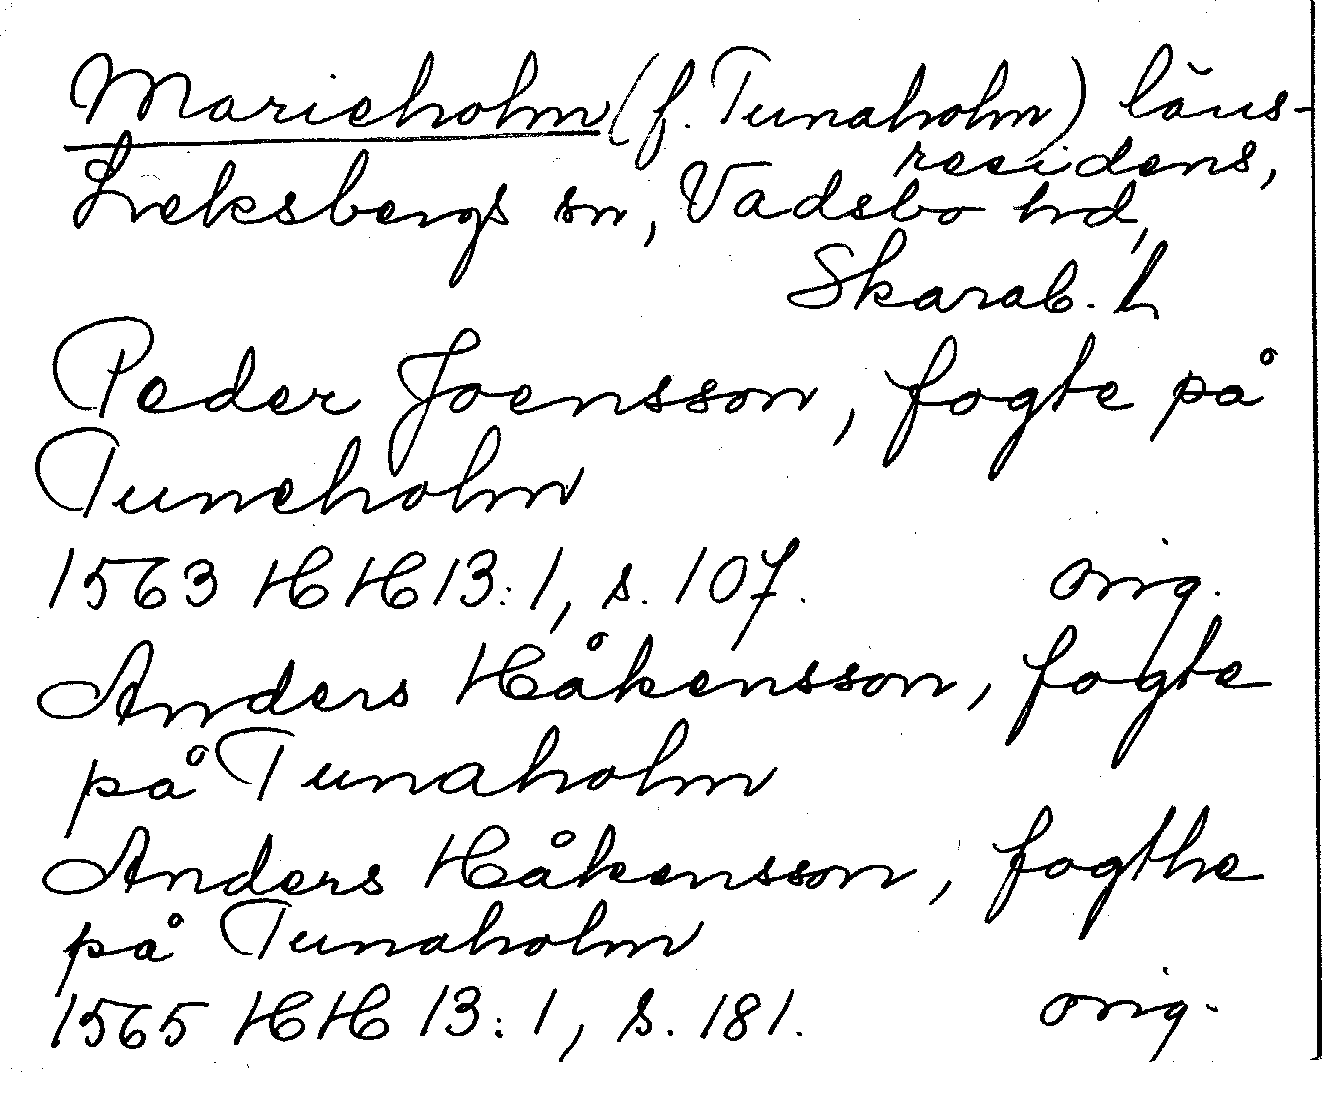 Marieholm (f. Tunaholm) läns-
residens,
Leksbergs sn, Vadsbo hd,
Skarab. l
Peder Joensson, fogte på
Tuneholm
1563 HH 13:1, s. 107. orig.
Anders Håkensson, fogte
på Tunaholm
Anders Håkensson, fogthe
på Tunaholm
1565 HH 13:1, s. 181. orig.